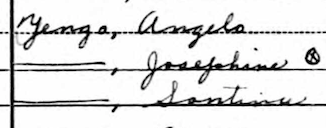 Yengo, Angelo
———, Josephine ⊗
———, Santina